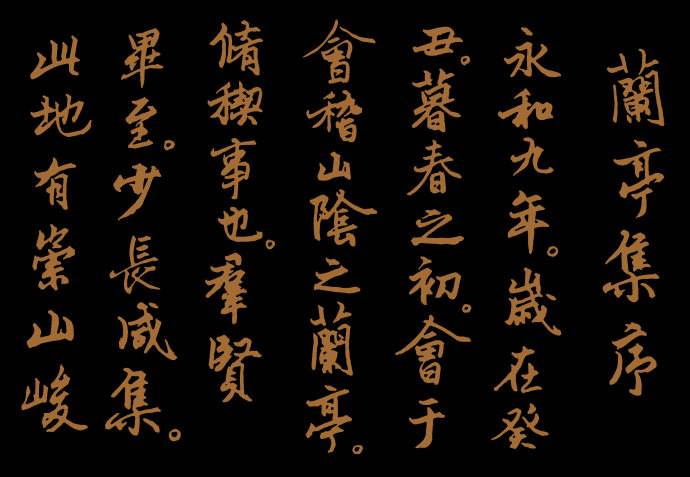 蘭亭集序
永和九年。歲在癸
丑。暮春之初。會于
會稽山陰之蘭亭。
脩稧事也。羣賢
畢至。少長咸集。
此地有崇山峻